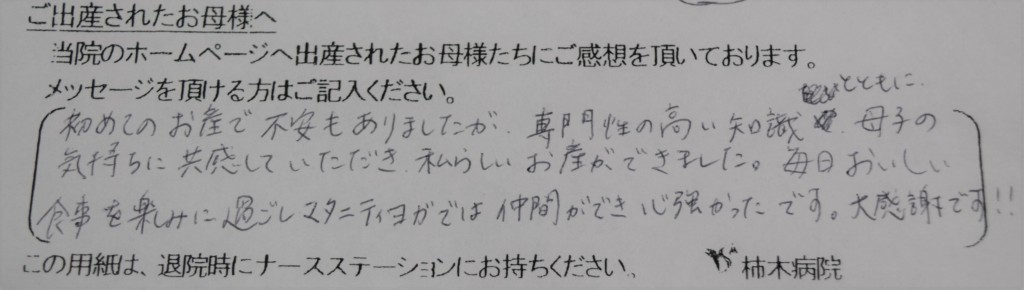 ご出産されたお母様へ
当院のホームページへ出産されたお母様たちにご感想を頂いております。
メッセージを頂ける方はご記入ください。
とともに、
初めてのお産で不安もありましたが、専門性の高い知識 母子の
気持ちに共感していただき、私らしいお産ができました。毎日おいしい
食事を楽しみに過ごしマタニティヨガでは仲間ができ心強かったです。大感謝です!!
この用紙は、退院時にナースステーションにお持ちください。 柿木病院